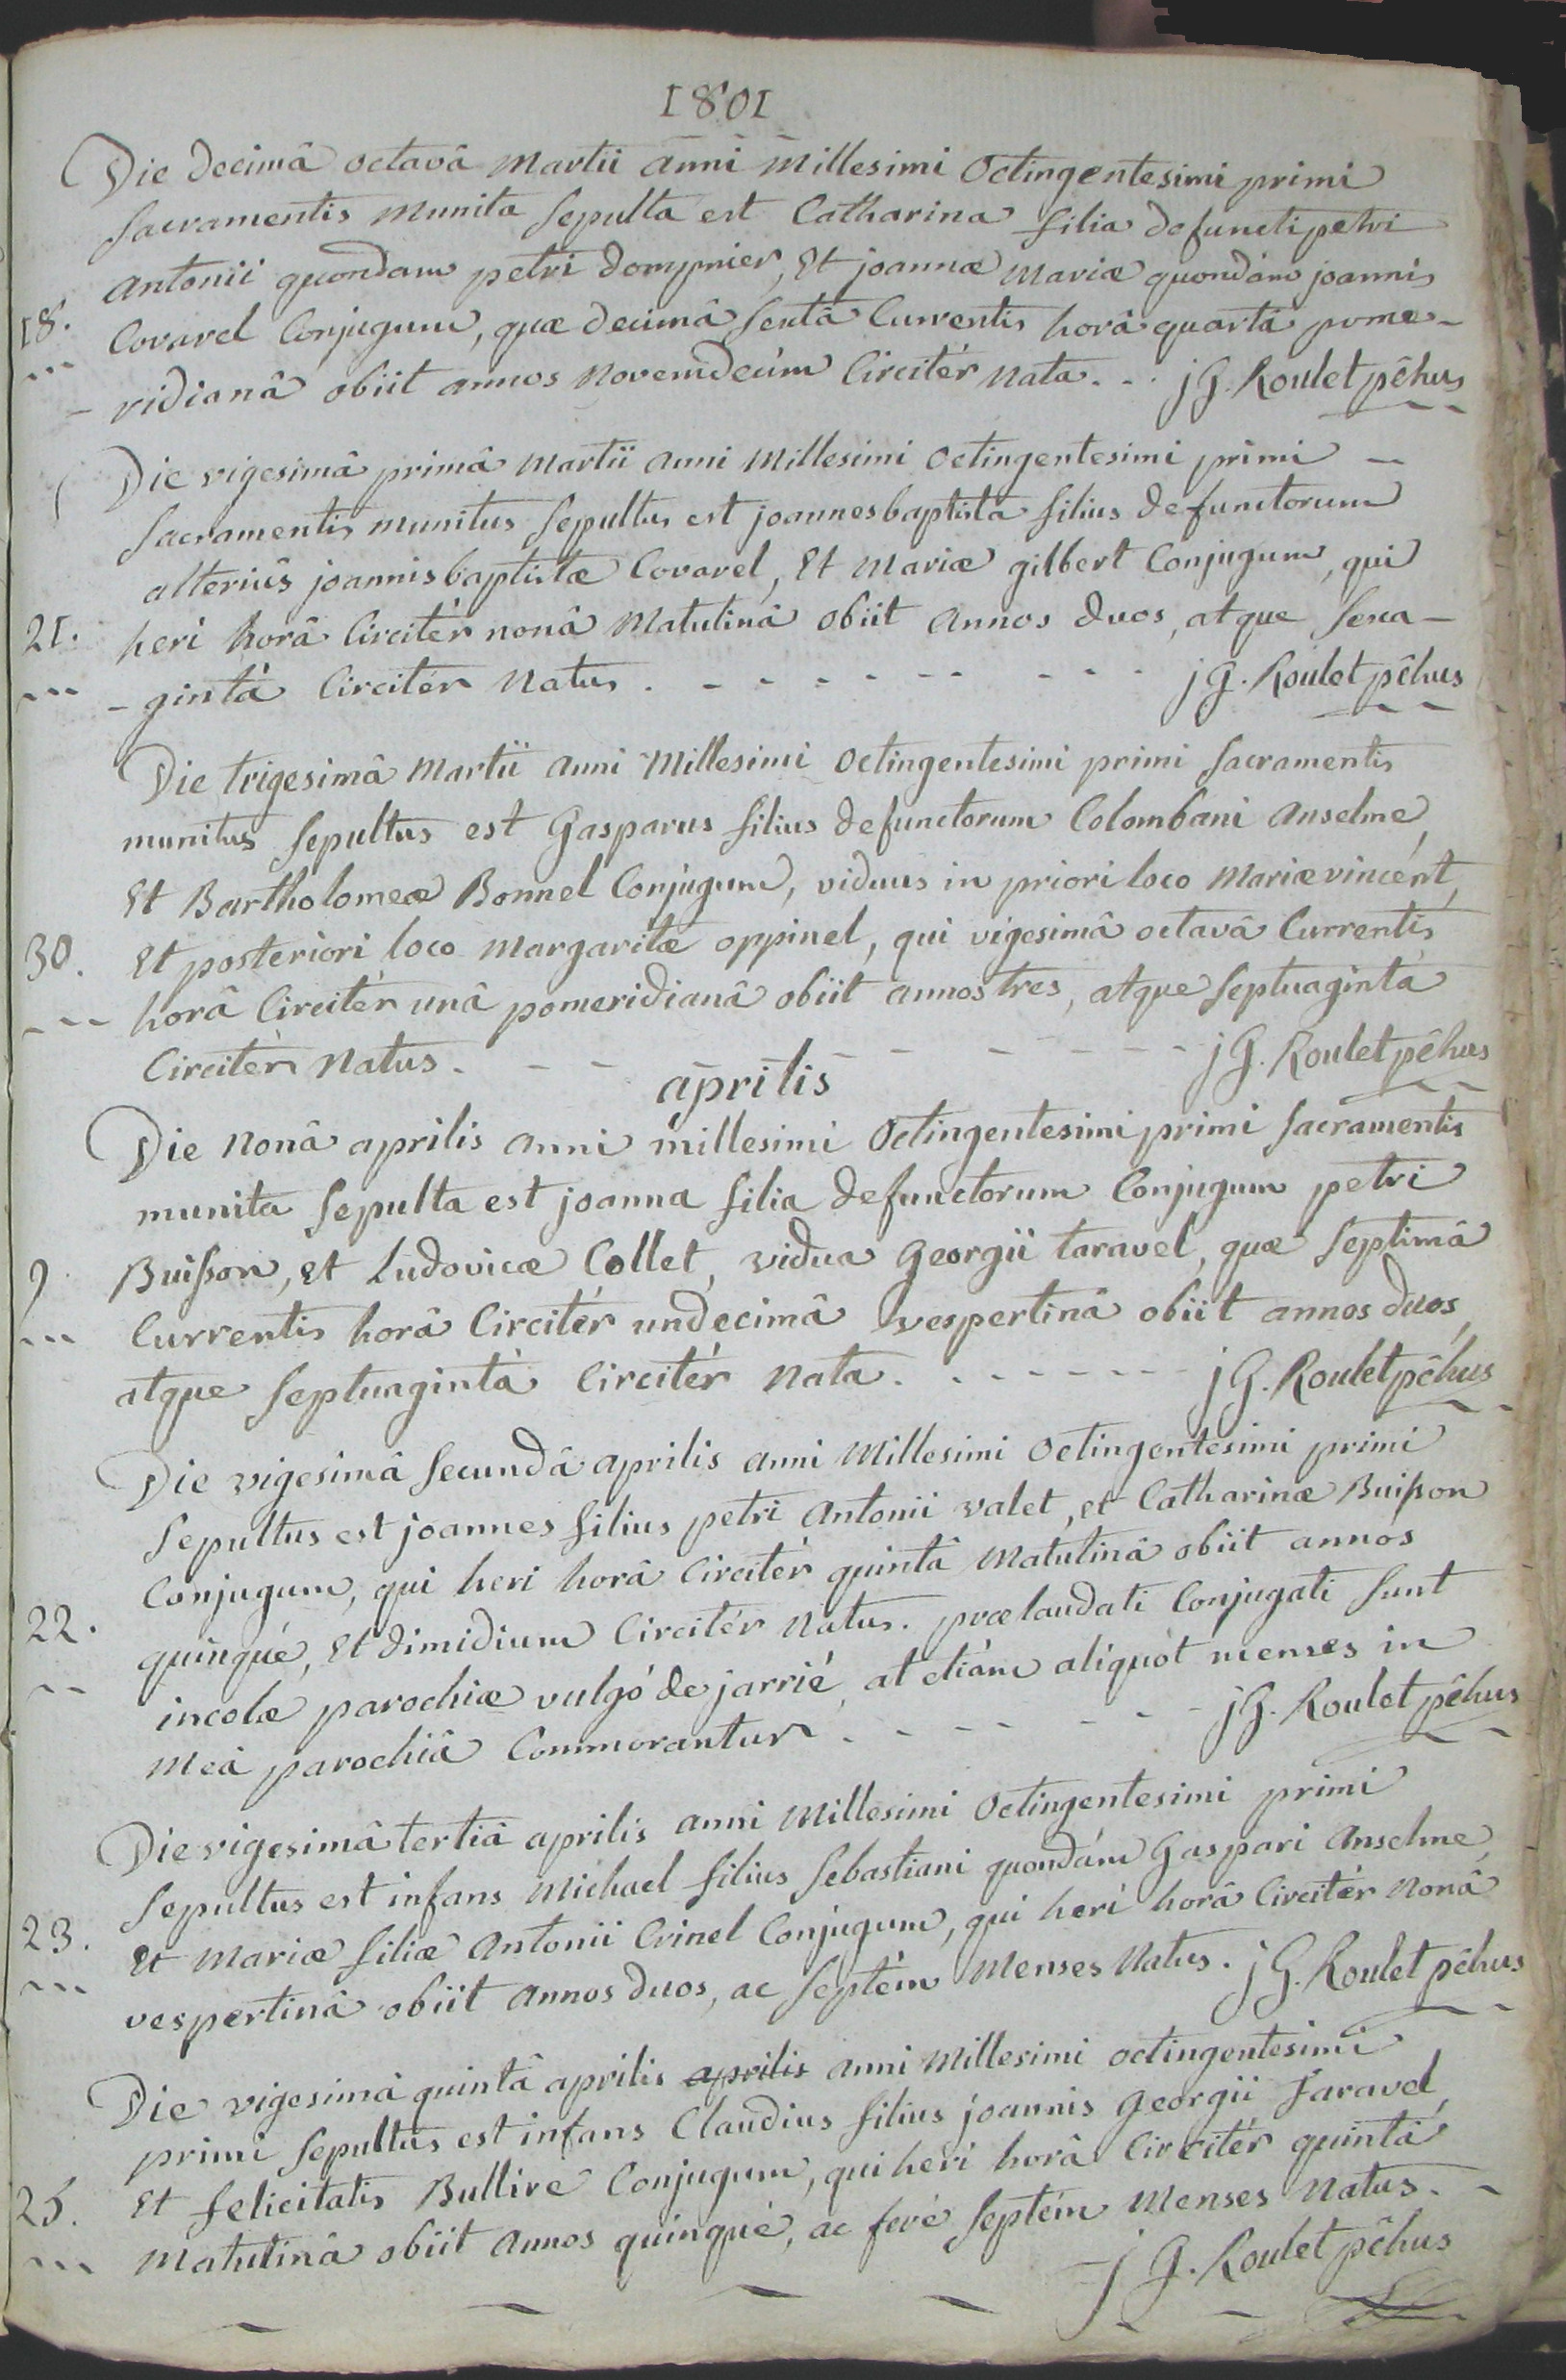 1801
Die decimâ octavâ Martii anni Millesimi Octingentesimi primi
Sacramentis munita Sepulta est Catharina filia defuncti petri
antonii quondam petri dompnier, Et joannæ Mariæ quondám joannis
18. Covarel Conjugum, quæ decimâ sextâ Currentis horâ quartâ pome-
- ridianâ obiit annos Novemdecím Circitér Nata. - . . jG. Roulet pêhus
Die vigesimâ primâ Martii anni Millesimi Octingentesimi primi -
Sacramentis munitus Sepultus est joannesbaptista filius defunctorum
alterius joannisbaptistæ Covarel, Et Mariæ gilbert Conjugum, qui
21. heri horâ Circitér nonâ Matutinâ obiit annos duos, atque Sexa-
- gintá Circitér Natus. - - - - - - - - - jG. Roulet pêhus
Die trigesimâ Martii anni Millesimi Octingentesimi primi Sacramentis
munitus Sepultus est Gasparus filius defunctorum Colombani anselme,
Et Bartholomeæ Bonnel Conjugum, viduus in priori loco Mariæ vincént,
30. Et posteriori loco Margaritæ oppinel, qui vigesimâ octavâ Currentis
horâ Circitér unâ pomeridianâ obiit annos tres, atque Septuagintá
Circitér Natus. - - - - - - - - jG. Roulet pêhus
aprilis
Die Nonâ aprilis anni millesimi Octingentesimi primi Sacramentis
munita Sepulta est joanna filia defunctorum Conjugum petri
9 Buisson, et Ludovicæ Collet, vidua Georgii taravel, quæ Septimâ
Currentis horâ Circitér undecimâ vespertinâ obiit annos duos,
atque Septuagintá Circitér Nata. . - - - - - - jG. Roulet pêhus
Die vigesimâ Secundâ aprilis anni Millesimi Octingentesimi primi
Sepultus est joannes filius petri Antonii valet, et Catharinæ Buisson
Conjugum, qui heri horâ Circitér quintâ Matutinâ obiit annós
22. quinqué, Et dimidium Circitér Natus. prælaudati Conjugati Sunt
incolæ parochiæ vulgó de jarrié, at etiám aliquót menses in
Meâ parochiâ Commorantur. - - - - - - jG. Roulet pêhus
Die vigesimâ tertiâ aprilis anni Millesimi Octingentesimi primi
Sepultus est infans Michael filius Sebastiani quondám Gaspari Anselme,
23. Et Mariæ filiæ Antonii Crinel Conjugum, qui heri horâ Circitér Nonâ
vespertinâ obiit annos duos, ac Septém Menses Natus. jG. Roulet pêhus
Die vigesimâ quintâ aprilis aprilis anni Millesimi octingentesimi
primi Sepultus est infans Claudius filius joannis Georgii Taravel,
25. Et felicitatis Bullire Conjugum, qui heri horâ Circitér quintâ
Matutinâ obiit annos quinqué, ac feré Septém Menses Natus. -
jG. Roulet pêhus